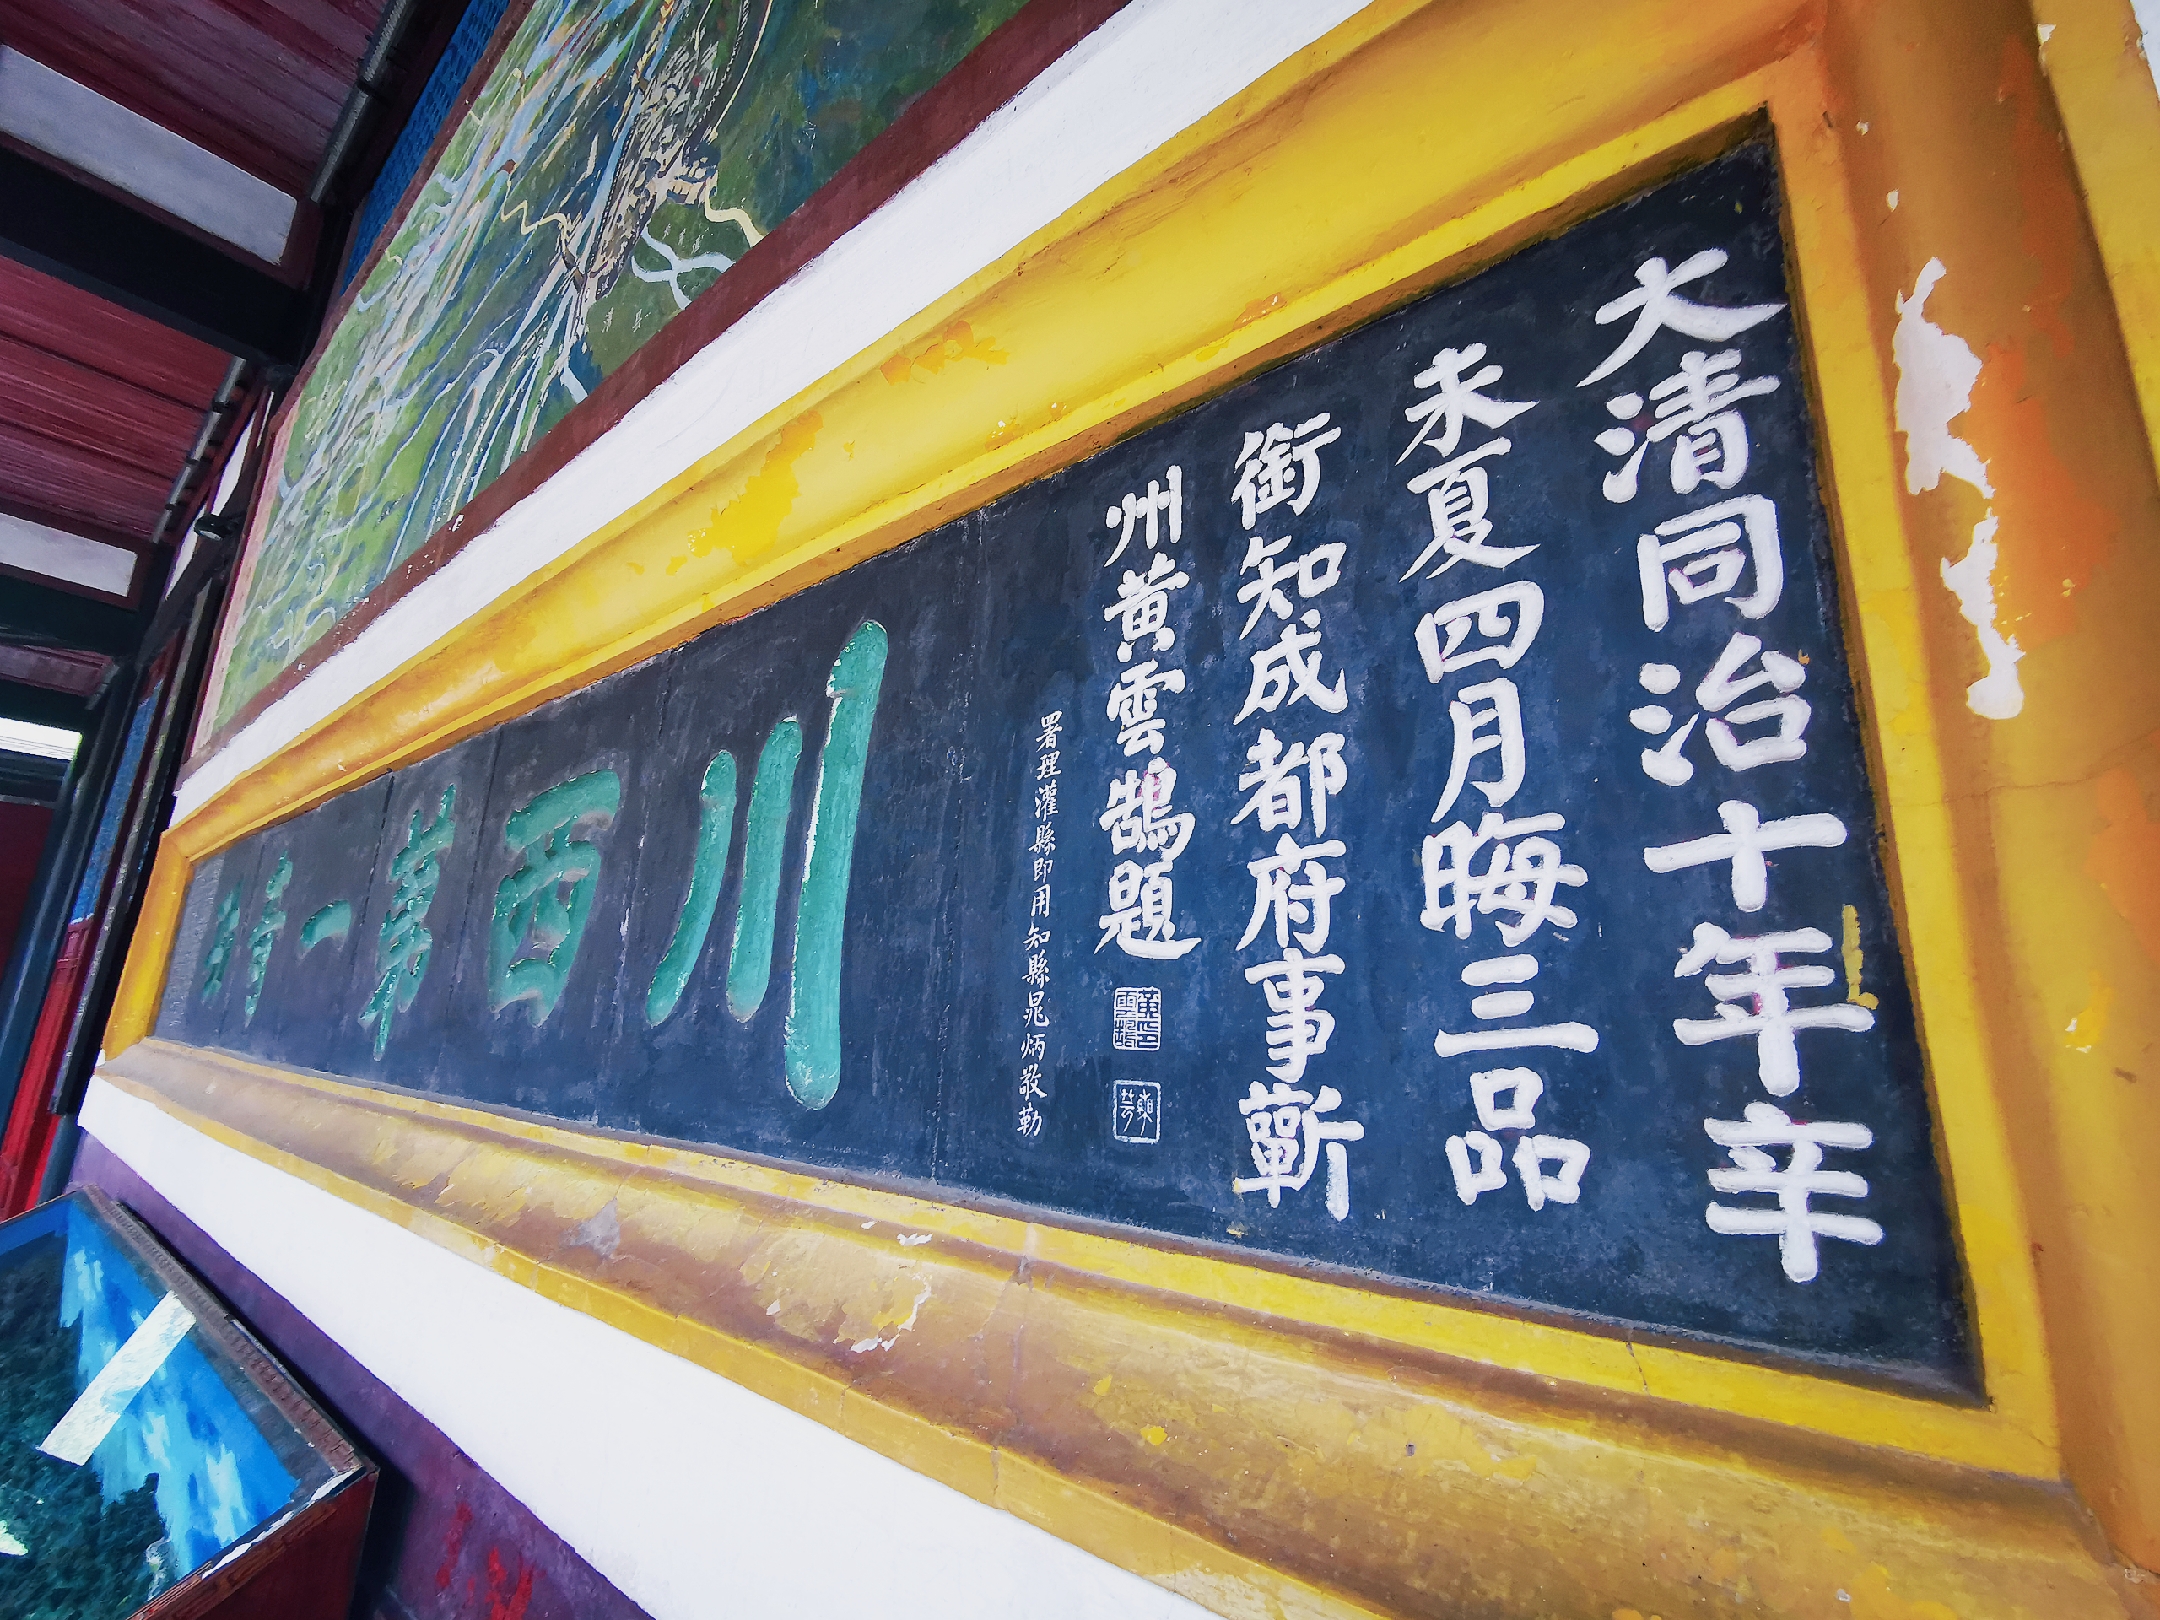 大清同治十年辛
未夏四月晦三品
銜知成都府事蘄
州黄雲鵠題
黄印雲鵠
署理灌縣即用知縣晁炳敬勒
川西第一奇功